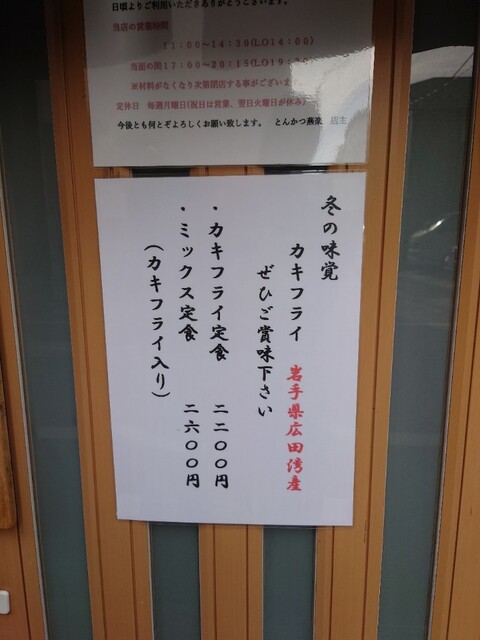 日頃よりご利用いただきありがとうございます。
当店の営業時間
11:00～14:30(LO14:00)
当面の間17:00～20:15(LO19:30)
※材料がなくなり次第閉店する事がございます。
定休日 毎週月曜日(祝日は営業、翌日火曜日が休み)
今後とも何とぞよろしくお願い致します。 とんかつ燕楽 店主
冬の味覚
カキフライ 岩手県広田湾産
ぜひご賞味下さい
・カキフライ定食 二二〇〇円
・ミックス定食 二六〇〇円
(カキフライ入り)